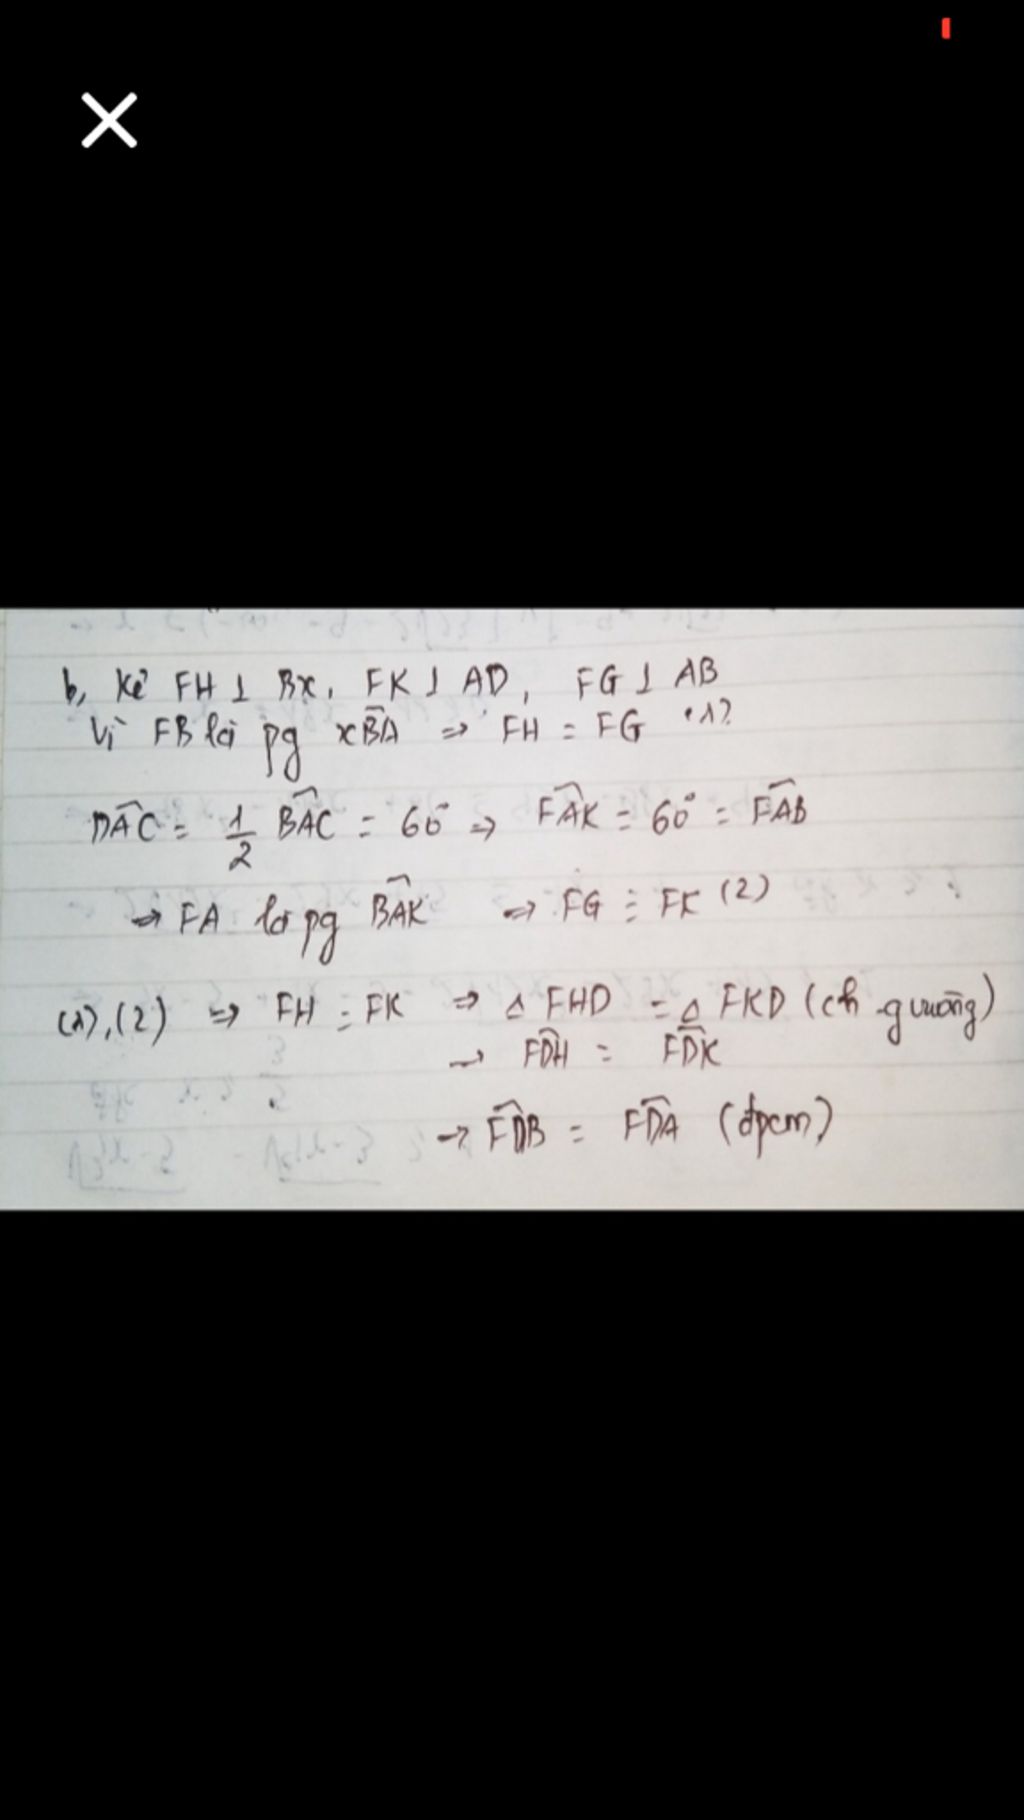 b, Kẻ FH ⊥ Bx, FK ⊥ AD, FG ⊥ AB
Vì FB là pg xBA ⇒ FH = FG (1)
DAC = 1/2 BAC = 60° ⇒ FAK = 60° = FAB
⇒ FA là pg BAK ⇒ FG = FK (2)
(1), (2) ⇒ FH = FK ⇒ △ FHD = △ FKD (ch - g vuông)
→ FDH = FDK
→ FDB = FDA (đpcm)